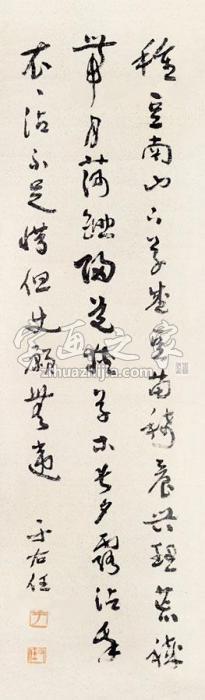 種豆南山下草盛豆苗稀晨興理荒穢
帶月荷鋤歸道狹草木長夕露沾我
衣〻沾不足惜但使願無違
于右任
字画之家
zihuazhijia.com